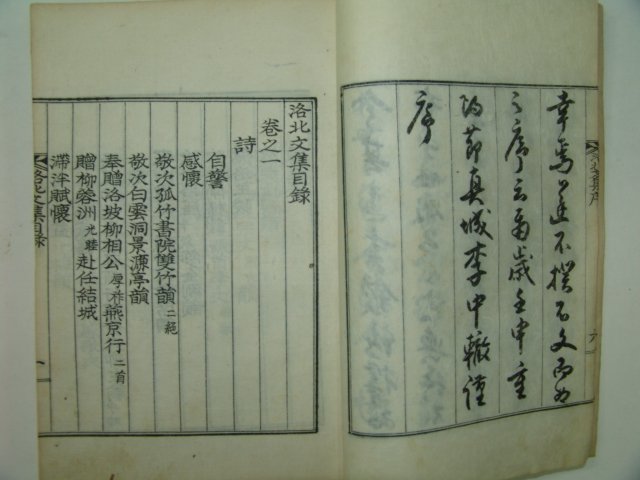 幸焉遂不揆不文而為
之序云爾歲壬申重
陽節真城李中轍謹
序
洛北文集目錄
卷之一
詩
自警
感懷
敬次孤竹書院雙竹韻二絕
敬次白雲洞景濂亭韻
奉贈洛坡柳相公厚祚燕京行二首
贈柳蓉洲光睦赴任結城
滯泮賦懷
洛北文集目錄 一